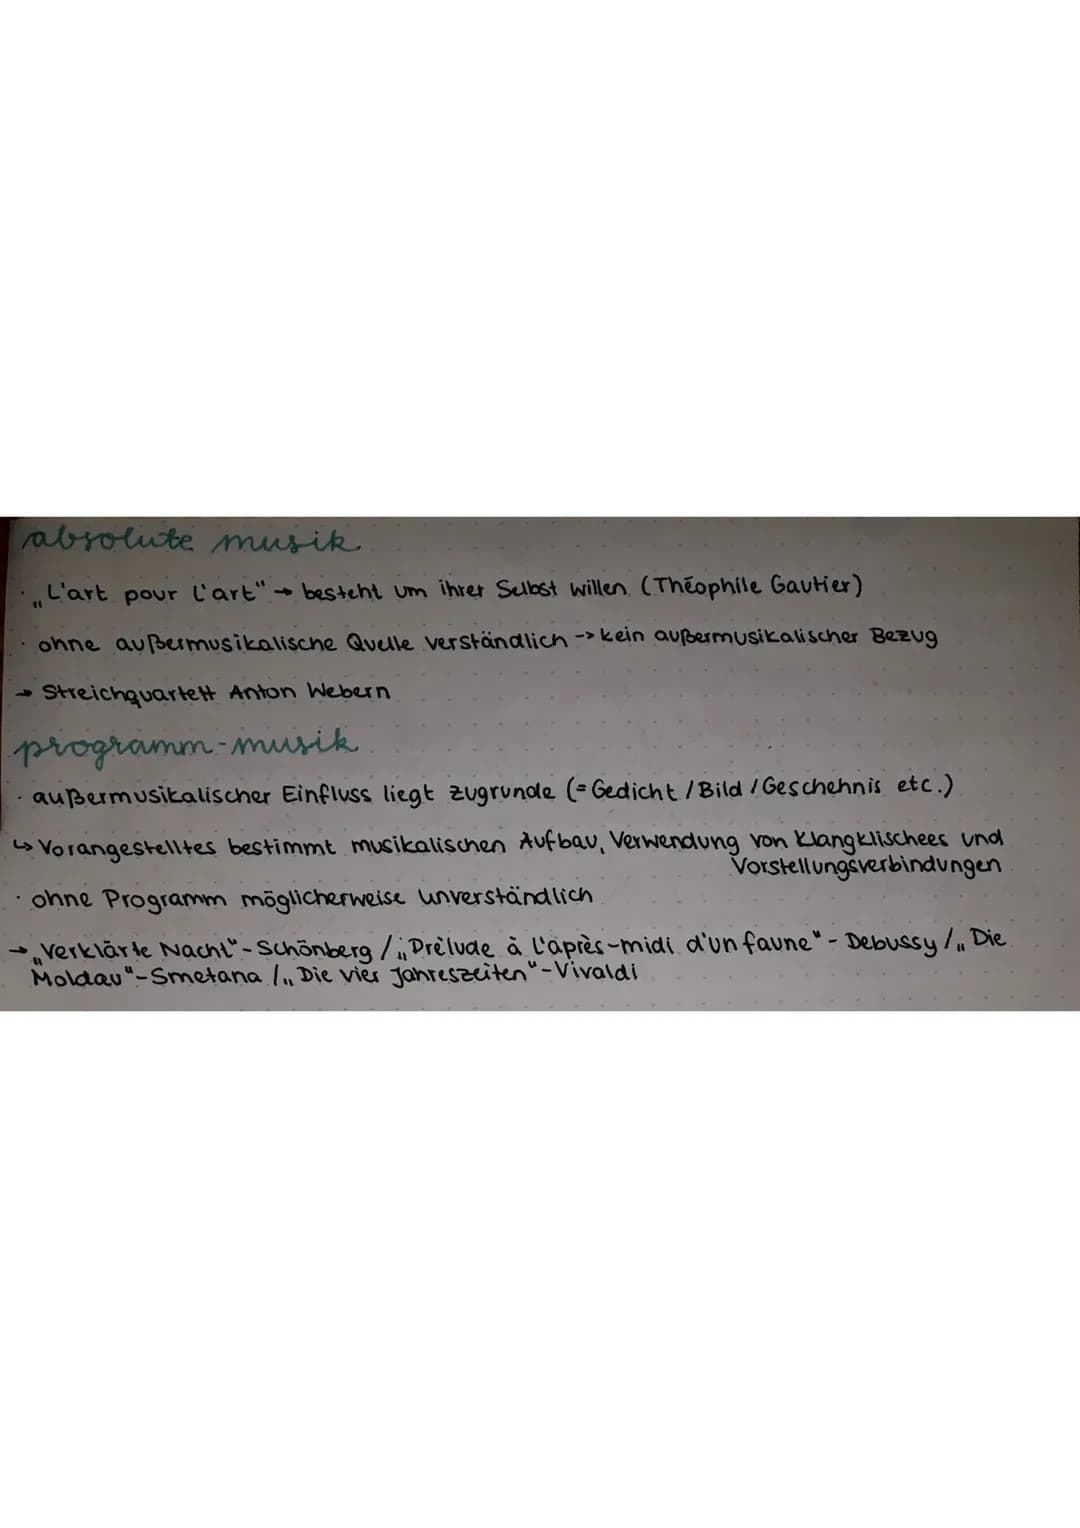 absolute musik
· „L'art pour l'art" → besteht um ihrer Selbst willen (Théophile Gautier)
· ohne außermusikalische Quelle verständlich -> kein außermusikalischer Bezug
→ Streichquartett Anton Webern
programm-musik
· außermusikalischer Einfluss liegt zugrunde (= Gedicht / Bild / Geschehnis etc.)
↳ Vorangestelltes bestimmt musikalischen Aufbau, Verwendung von Klangklischees und
Vorstellungsverbindungen
· ohne Programm möglicherweise unverständlich
→ „Verklärte Nacht" - Schönberg / „Prèlude à l'après-midi d'un faune" - Debussy / „Die
Moldau" - Smetana / „Die vier Jahreszeiten" - Vivaldi